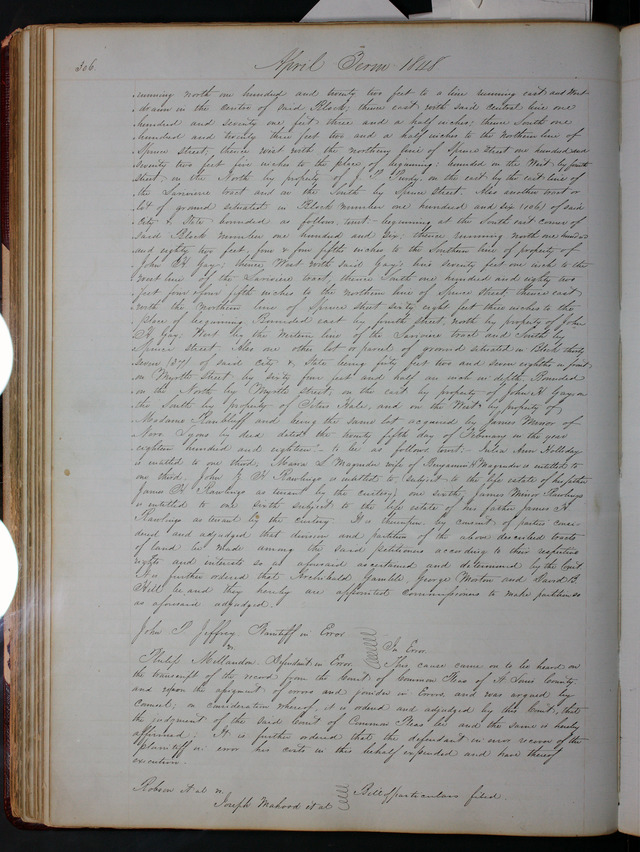 306
April Term 1848
running north one hundred and twenty two feet to a line running east and West
drawn in the centre of said Block; thence east with said central line one
hundred and seventy one feet three and a half inches; thence South one
hundred and twenty three feet two and a half inches to the Northern line of
Spruce street, thence west with the northern line of Spruce Street one hundred and
seventy two feet five inches to the place of beginning: bounded on the West by fourth
street, on the North by property of J. P. on the east by the east line of
the tract and on the South by Spruce Street. Also another tract or
lot of ground situated in Block number one hundred and six (106) of said
City & State bounded as follows, to wit: beginning at the South east corner of
said Block number one hundred and six; thence running north one hundred
and eighty two feet, four & four fifths inches to the Southern line of property of
John H Gay; thence West with said Gay's line seventy feet one inch to the
west line of the tract, thence South one hundred and eighty two
feet four & four fifth inches to the northern line of Spruce Street thence east
with the northern line of Spruce street sixty eight feet three inches to the
place of beginning. Bounded east by fourth street, north by property of John
H Gay, West by the Western line of the tract and South by
Spruce Street. Also one other lot or parcel of ground situated in Block thirty
seven (37) of said city & State being fifty feet two and seven eighths in front
on Myrtle Street by sixty four feet and half an inch in depth. Bounded
on the North by Myrtle street, on the east by property of John H Gay on
the South by property of Peter Hale, and on the West by property of
Madame and being the same lot acquired by James Minor of
by deed dated the twenty fifth day of February in the year
eighteen hundred and eighteen - to be as follows to wit: Julia Ann Holliday
is entitled to one third, Maria L Magruder wife of Benjamin H Magruder is entitled to
one third. John J. H Rawlings is entitled to (subject to the life estate of his father
James H Rawlings as tenant by the curtesy) one sixth, James Minor Rawlings
is entitled to one sixth subject to the life estate of his father James H
Rawlings as tenant by the curtesy. It is therefore by consent of parties consi-
dered and adjudged that division and partition of the above described tracts
of land be made among the said petitioners according to their respective
rights and interests so as aforesaid ascertained and determined by the Court
It is further ordered that Archibald Gamble George Morton and David B.
Hill be and they hereby are appointed commissioners to make partition so
as aforesaid adjudged.
John P. Jeffrey Plaintiff in Error
v.
In Error
Philip McLandon Defendant in Error. This cause came on to be heard on
the transcript of the record from the Court of Common Pleas of St Louis County
and upon the assignment of errors and joinder in Error, and was argued by
counsel; on consideration whereof, it is ordered and adjudged by this Court, that
the judgment of the said Court of Common Pleas be and the same is hereby
affirmed: It is further ordered that the defendant in error recover of the
plaintiff in error his costs in this behalf expended and have thereof
execution.
Robson et al vs.
Joseph Mahood et al
Bill of particulars filed